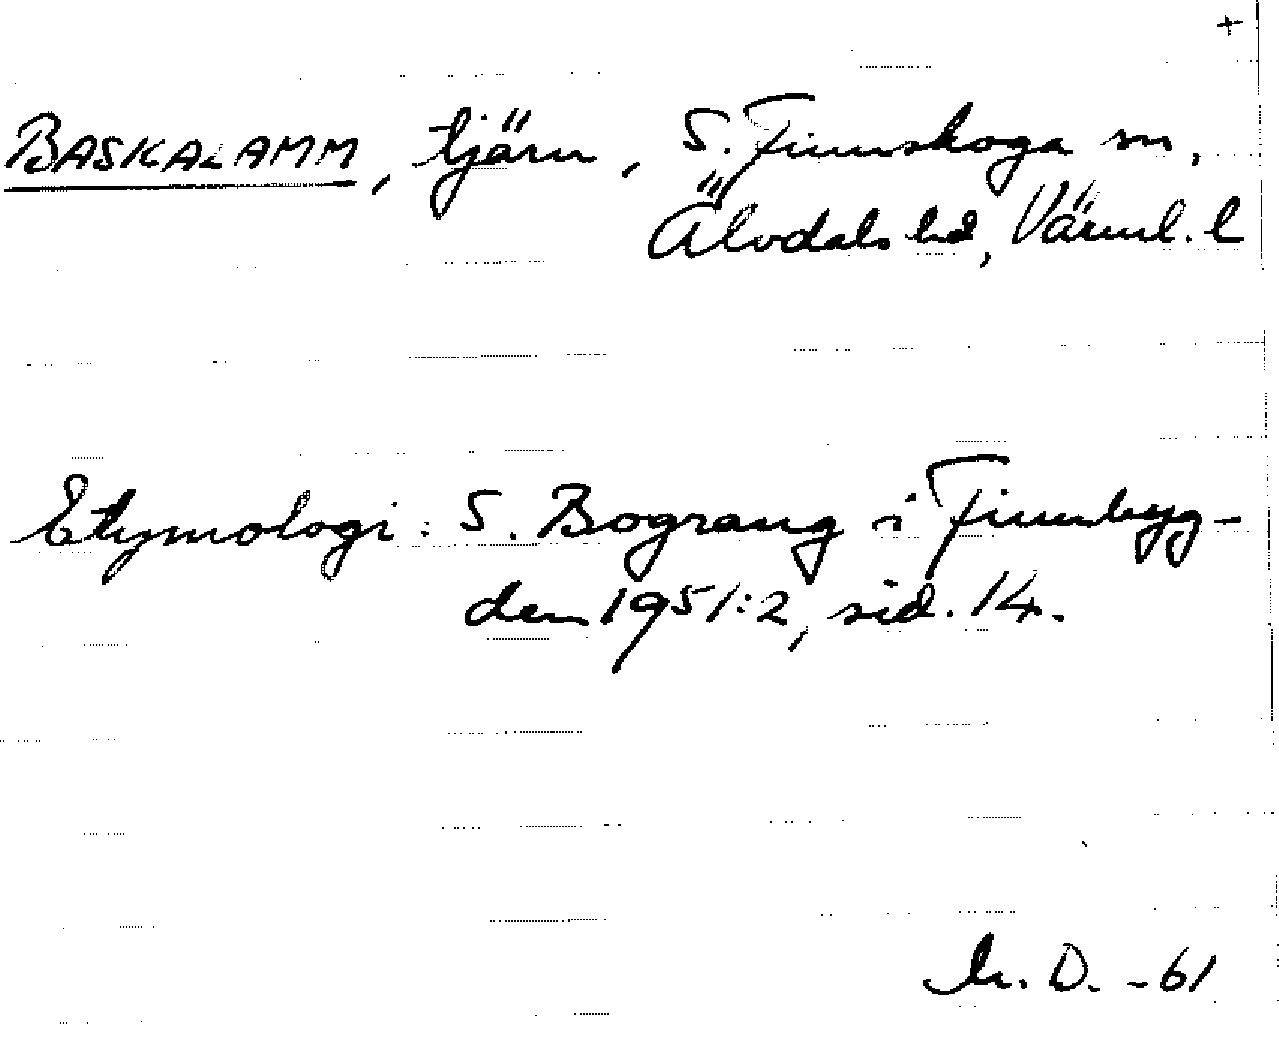 +
BASKALAMM, tjärn, S. Finnskoga sn,
Älvdals hd, Värml. l
Etymologi: S. Bograng i Finnbyg-
den 1951:2, sid. 14.
D. -61